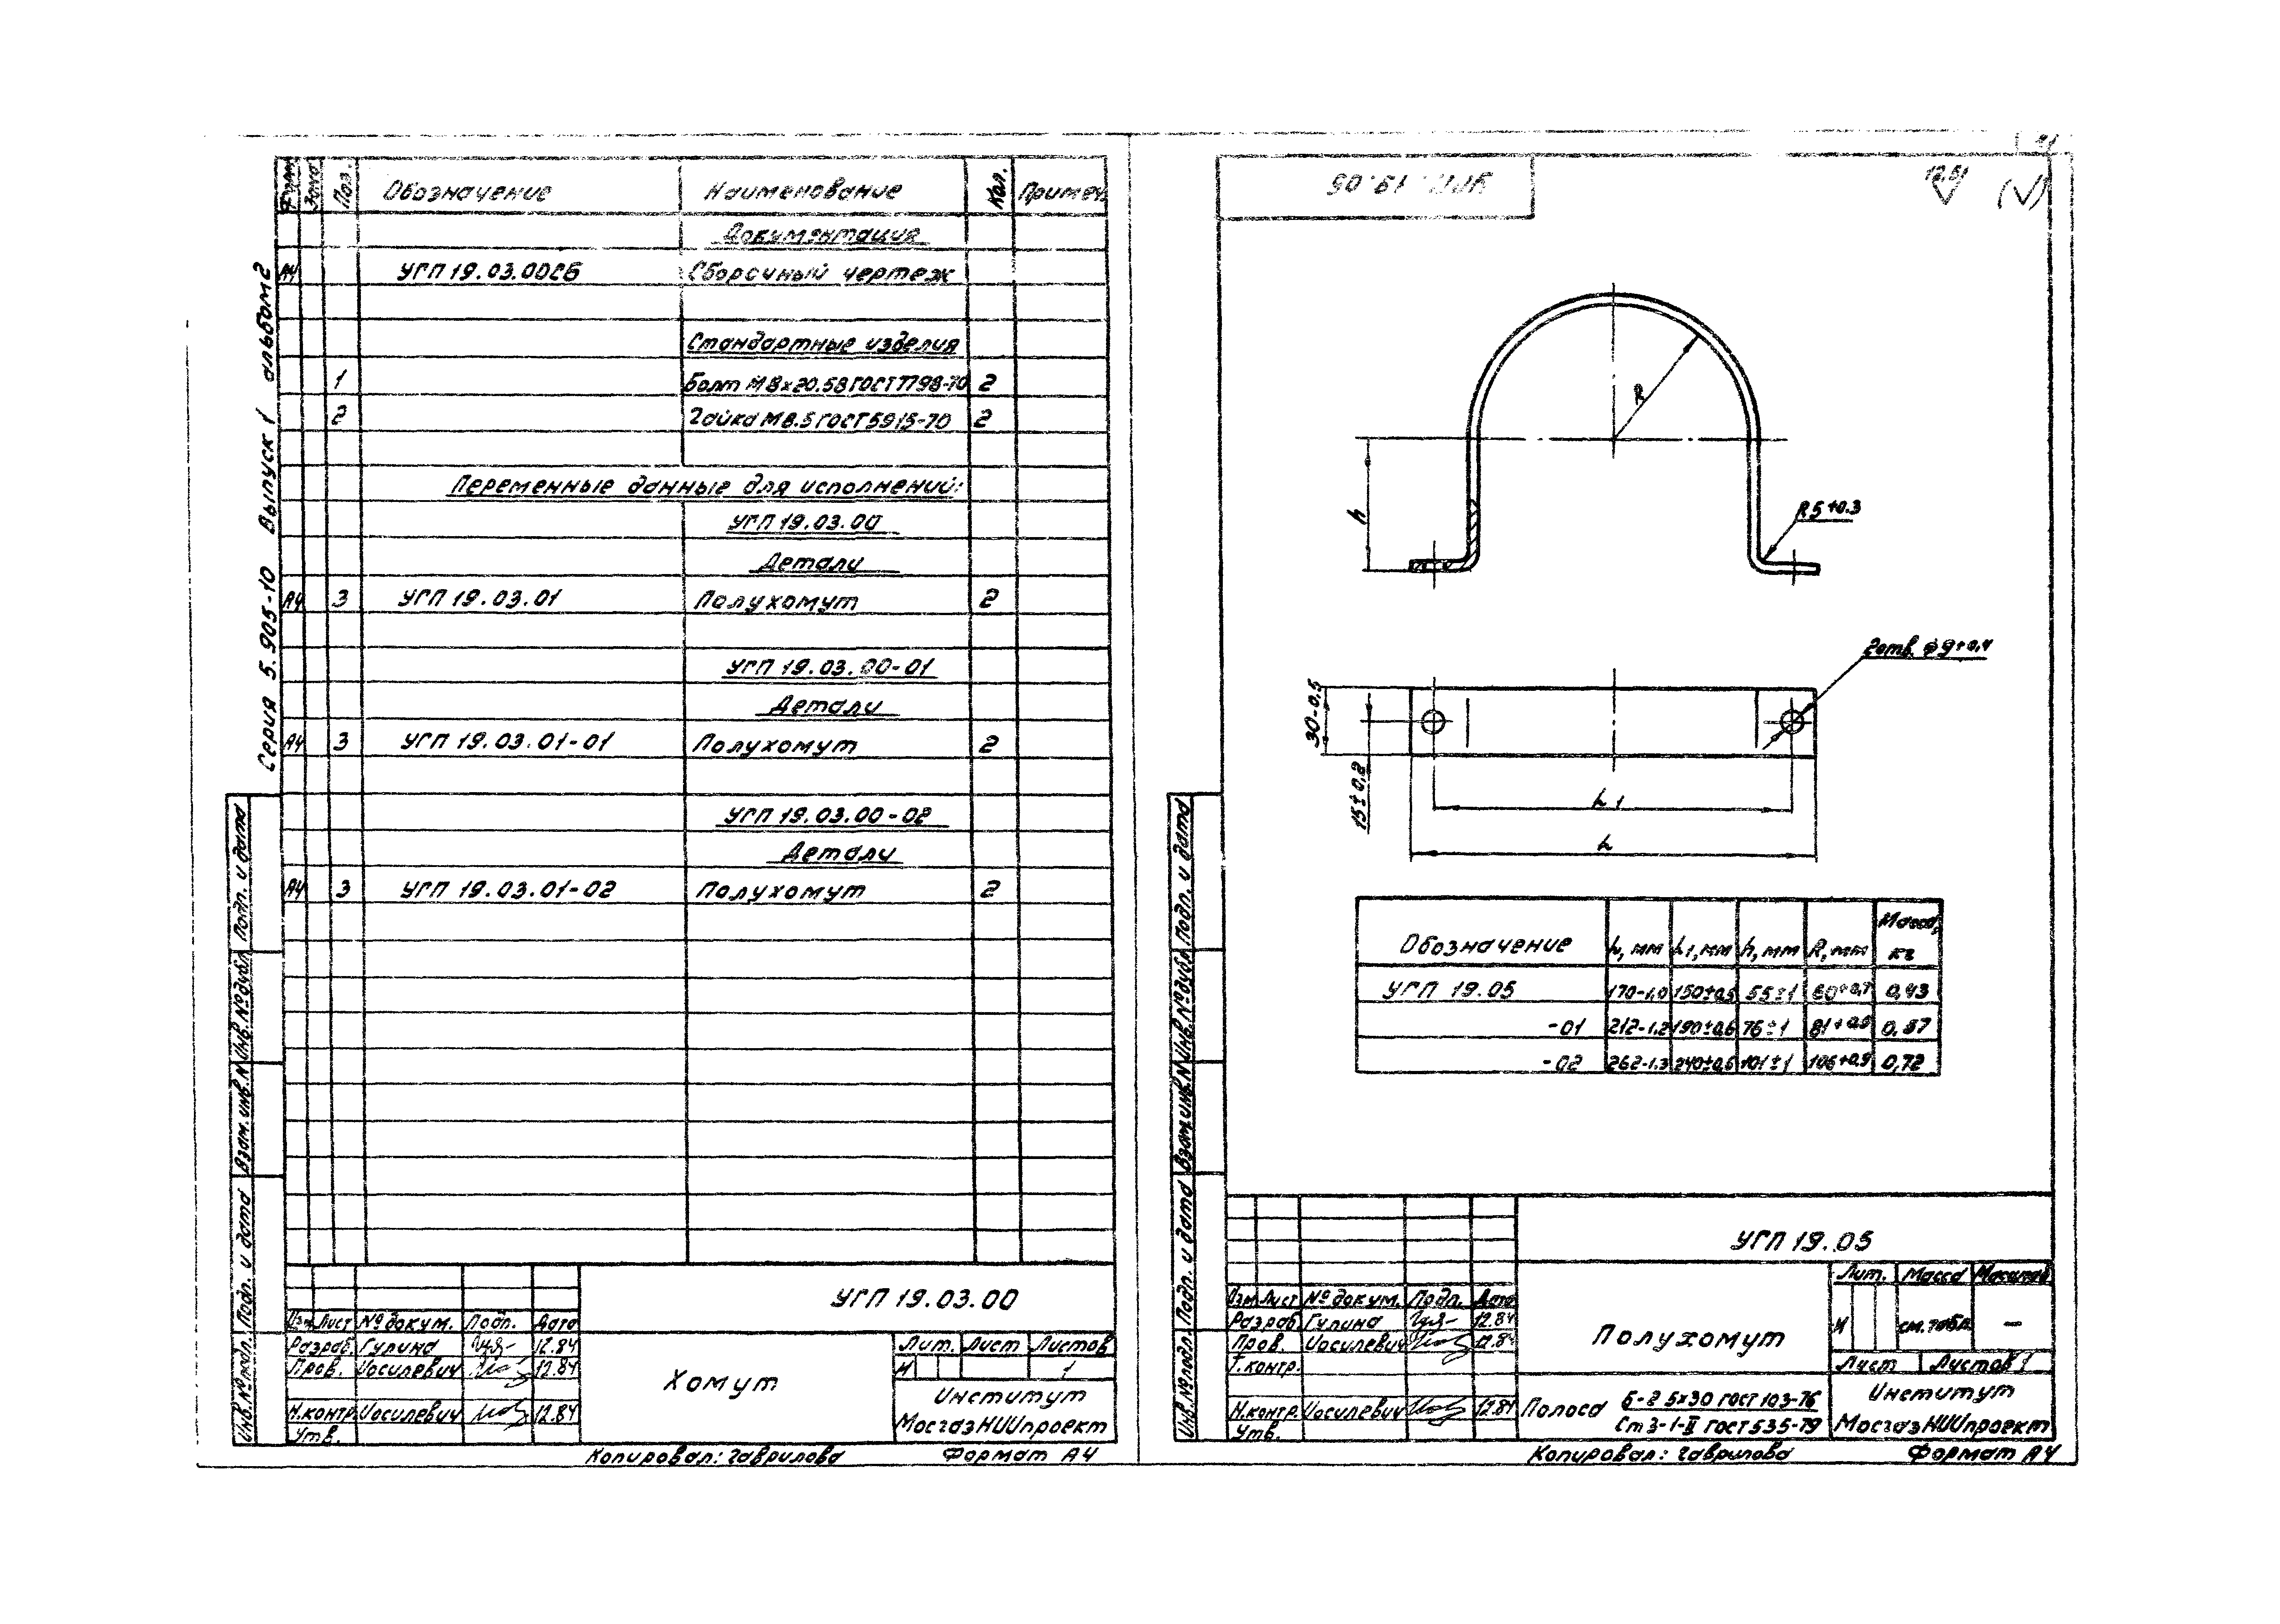 Серия 5.905-10 Выпуск 1 альбом 2
Форм. Зона Поз. Обозначение Наименование Кол. Примеч.
Документация
А4 УГП 19.03.00СБ Сборочный чертеж
Стандартные изделия
1 Болт М8х20.58 ГОСТ 7798-70 2
2 Гайка М8.5 ГОСТ 5915-70 2
Переменные данные для исполнений:
УГП 19.03.00
Детали
А4 3 УГП 19.03.01 Полухомут 2
УГП 19.03.00-01
Детали
А4 3 УГП 19.03.01-01 Полухомут 2
УГП 19.03.00-02
Детали
А4 3 УГП 19.03.01-02 Полухомут 2
Подп. и дата
Инв. № дубл.
Взам. инв. №
Подп. и дата
Инв. № подл.
УГП 19.03.00
Изм. Лист № докум. Подп. Дата
Разраб. Гулина 12.84
Пров. Иосилевич 12.84
Н.контр. Иосилевич 12.84
Утв.
Хомут
Лит. Лист Листов
И 1
Институт
МосгазНИИпроект
Копировал: Гаврилова Формат А4
УГП 19.05
12,5 (√)
R
h
R5+0.3
2 отв. ф9+0,4
30-0.5
15±0.2
L1
L
Обозначение L, мм L1, мм h, мм R, мм Масса, кг
УГП 19.05 170-1,0 150±0,5 55±1 60+0,7 0,43
-01 212-1.2 190±0,6 76±1 81+0,9 0,57
-02 262-1.3 240±0,6 101±1 106+0,9 0,72
Подп. и дата
Инв. № дубл.
Взам. инв. №
Подп. и дата
Инв. № подл.
УГП 19.05
Изм. Лист № докум. Подп. Дата
Разраб. Гулина 12.84
Пров. Иосилевич 12.84
Т.контр.
Н.контр. Иосилевич 12.84
Утв.
Полухомут
Лит. Масса Масштаб
И см. табл. —
Лист Листов 1
Полоса Б-2 5х30 ГОСТ 103-76
Ст 3-1-II ГОСТ 535-79
Институт
МосгазНИИпроект
Копировал: Гаврилова Формат А4